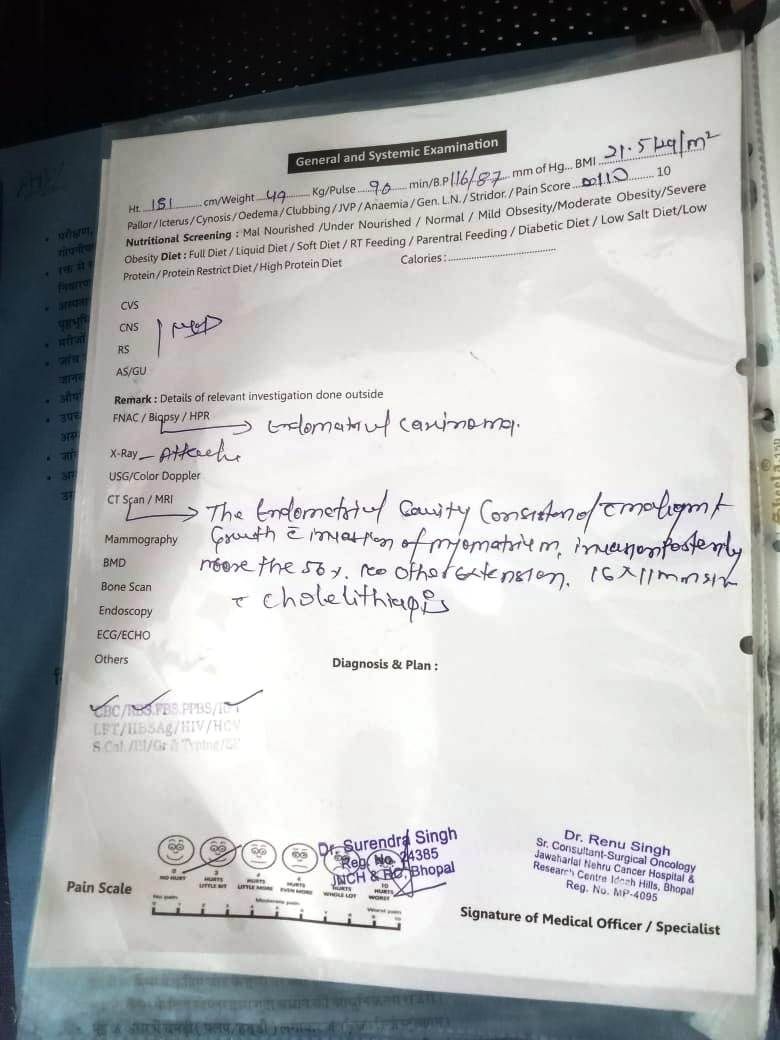 General and Systemic Examination
Ht. 151 cm/Weight 49 Kg/Pulse 90 min/B.P 116/87 mm of Hg... BMI 21.5 kg/m²
Pallor / Icterus / Cynosis / Oedema / Clubbing / JVP / Anaemia / Gen. L.N. / Stridor. / Pain Score 10
Nutritional Screening : Mal Nourished /Under Nourished / Normal / Mild Obsesity/Moderate Obesity/Severe
Obesity Diet : Full Diet / Liquid Diet / Soft Diet / RT Feeding / Parentral Feeding / Diabetic Diet / Low Salt Diet/Low
Protein / Protein Restrict Diet / High Protein Diet Calories :
CVS
CNS
RS
AS/GU
Remark : Details of relevant investigation done outside
FNAC / Biopsy / HPR Endometrial Carcinoma.
X-Ray Attach
USG/Color Doppler
CT Scan / MRI The Endometrial Cavity
Mammography Growth c̄ invasion of myometrium,
BMD more the 50%. no other extension. 16 x 11 mm
Bone Scan c̄ cholelithiasis
Endoscopy
ECG/ECHO
Others
Diagnosis & Plan :
CBC/RBS.FBS.PPBS/
LFT/HBSAg/HIV/HCV
Dr. Surendra Singh
Reg. No. 24385
JNCH & RC, Bhopal
Dr. Renu Singh
Sr. Consultant-Surgical Oncology
Jawaharlal Nehru Cancer Hospital &
Research Centre Idgah Hills, Bhopal
Reg. No. MP-4095
0 2 4 6 10
NO HURT HURTS LITTLE BIT HURTS LITTLE MORE HURTS EVEN MORE HURTS WHOLE LOT HURTS WORST
Pain Scale
No pain Moderate pain Worst pain
Signature of Medical Officer / Specialist